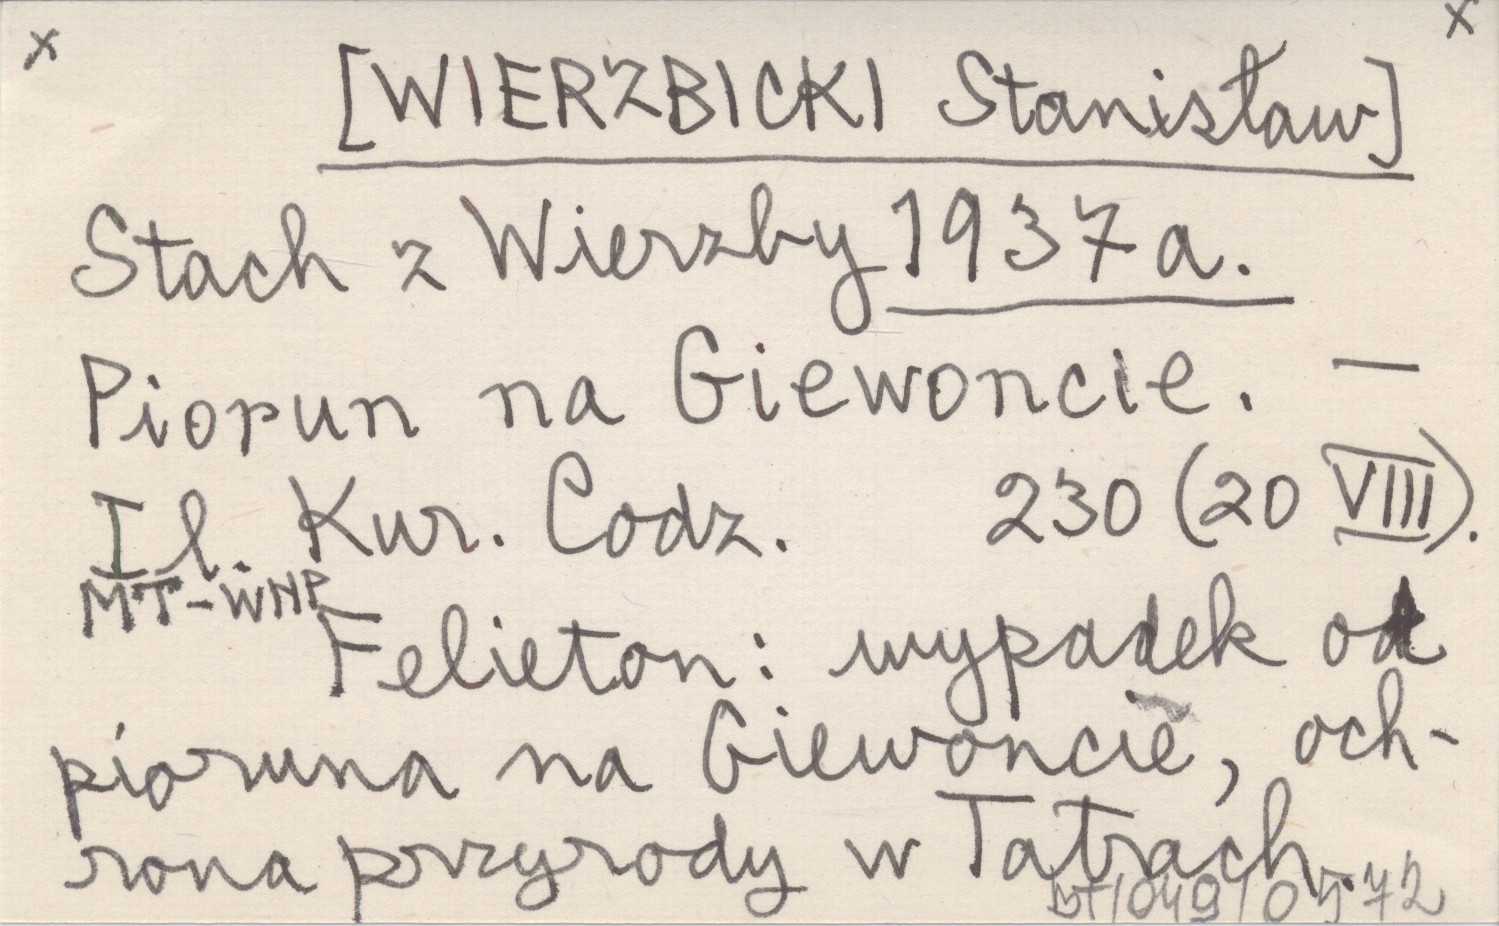 x x
[WIERZBICKI Stanisław]
Stach z Wierzby 1937 a.
Piorun na Giewoncie. —
Il. Kur. Codz. 230 (20 VIII).
MT-WNP
Felieton: wypadek od
pioruna na Giewoncie, och-
rona przyrody w Tatrach.
/049/0572